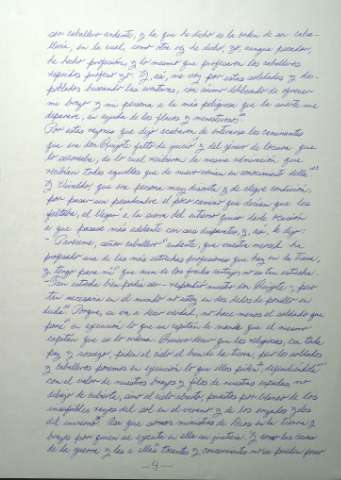 con caballero andante, y la que he dicho es la orden de su caba-
llería, en la cual, como otra vez he dicho, yo, aunque pecador,
he hecho profesión, y lo mesmo que profesaron los caballeros
referidos profeso yo. Y, así, me voy por estas soledades y des-
poblados buscando las aventuras, con ánimo deliberado de ofrecer
mi brazo y mi persona a la más peligrosa que la suerte me
deparare, en ayuda de los flacos y menesterosos".
Por estas razones que dijo acabaron de enterarse los caminantes
que era don Quijote falto de juicio y del género de locura que
lo señoreaba, de lo cual recibieron la mesma admiración que
recibían todos aquellos que de nuevo venían en conocimiento della.
Y Vivaldo, que era persona muy discreta y de alegre condición,
por pasar sin pesadumbre el poco camino que decían que les
faltaba, al llegar a la sierra del entierro quiso darle ocasión
a que pasase más adelante con sus disparates, y, así, le dijo:
- Paréceme, señor caballero andante, que vuestra merced ha
profesado una de las más estrechas profesiones que hay en la tierra,
y tengo para mí que aun la de los frailes cartujos no es tan estrecha.
- Tan estrecha bien podía ser - respondió nuestro don Quijote -, pero
tan necesaria en el mundo no estoy en dos dedos de ponello en
duda. Porque, si va a decir verdad, no hace menos el soldado que
pone en ejecución lo que su capitán le manda que el mesmo
capitán que se lo ordena. Quiero decir que los religiosos, con toda
paz y sosiego, piden al cielo el bien de la tierra, pero los soldados
y caballeros ponemos en ejecución lo que ellos piden, defendiéndola
con el valor de nuestros brazos y filos de nuestras espadas, no
debajo de cubierta, sino al cielo abierto, puestos por blanco de los
insufribles rayos del sol en el verano y de los erizados yelos
del invierno. Así que somos ministros de Dios en la tierra y
brazos por quien se ejecuta en ella su justicia. Y como las cosas
de la guerra y las a ellas tocantes y concernientes no se pueden poner
- 4 -